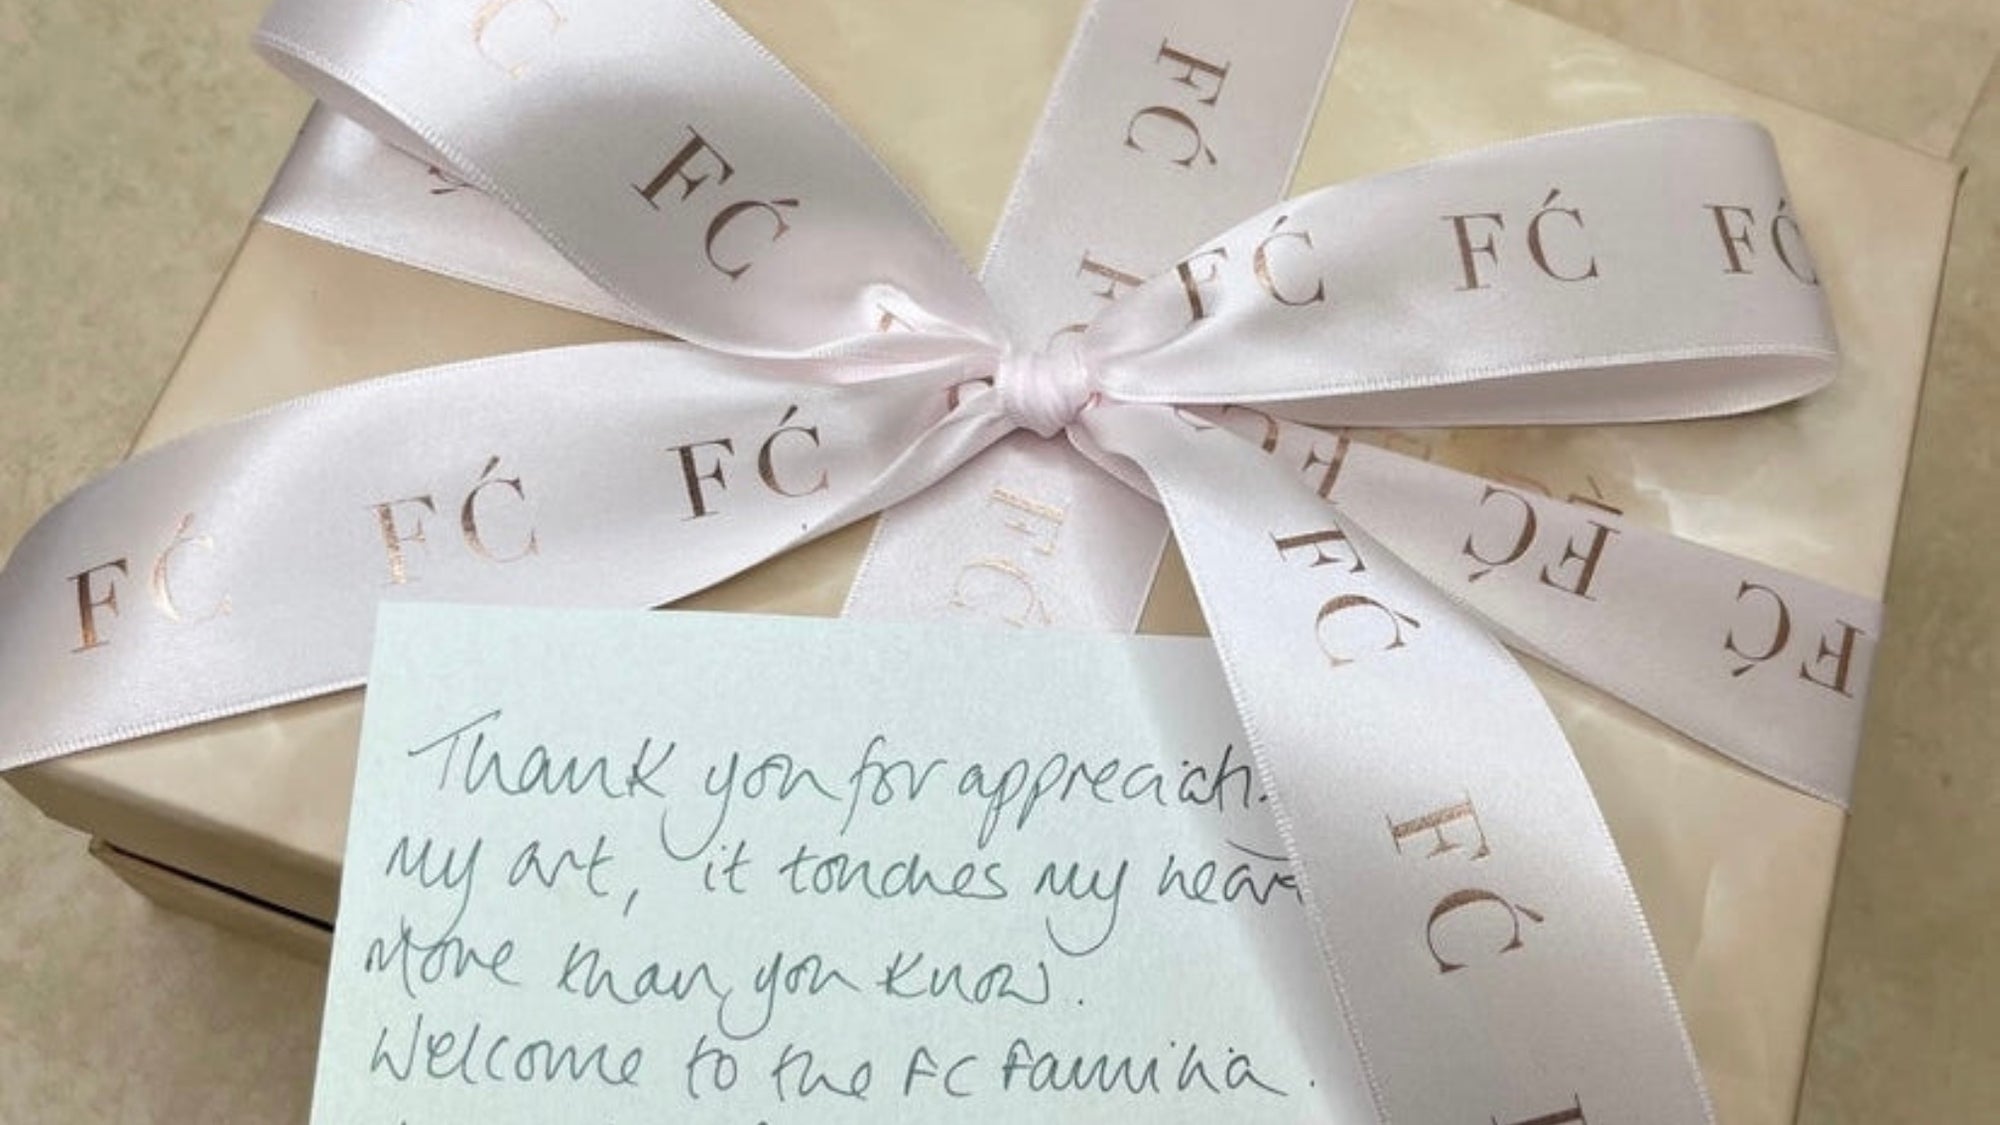 FĆ
FĆ
FĆ
FĆ
FĆ
FĆ
FĆ
FĆ
FĆ
FĆ
FĆ
FĆ
FĆ
FĆ
Thank you for
my art, it touches my
more than you know.
Welcome to the FC Familia.